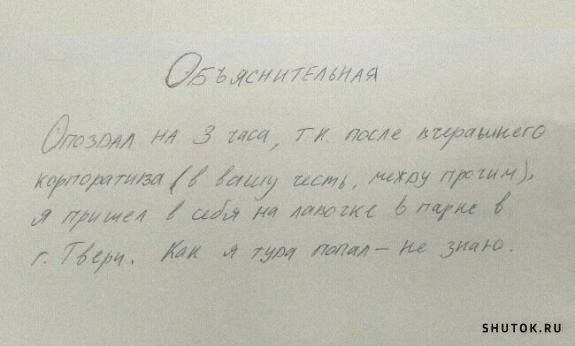 Объяснительная
Опоздал на 3 часа, т.к. после вчерашнего
корпоратива (в вашу честь, между прочим),
я пришел в себя на лавочке в парке в
г. Твери. Как я туда попал – не знаю.
SHUTOK.RU